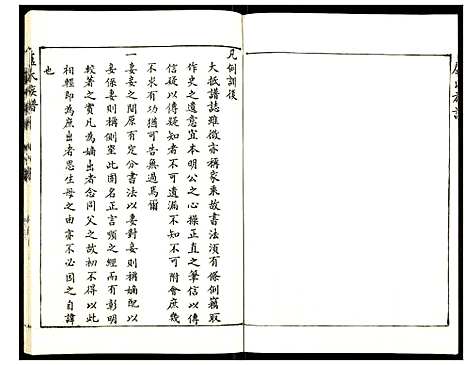 凡例訓後
大抵譜誌雖微亦稱家乘故書法須有條例竊取
作史之遺意宜本明公之心操正直之筆信以傳
信疑以傳疑知者不可遺漏不知者不可附會庶幾
不求有功猶可告無過焉爾
一妻妾之間原有定分書法以妻對妾則稱嫡配以
妾係妻則稱側室此固名正言順之經而有彰明
較著之實凡為嫡出者念同父之故初不得以此
相輕即為庶出者思生母之由亦不必因之自諱
也
族譜